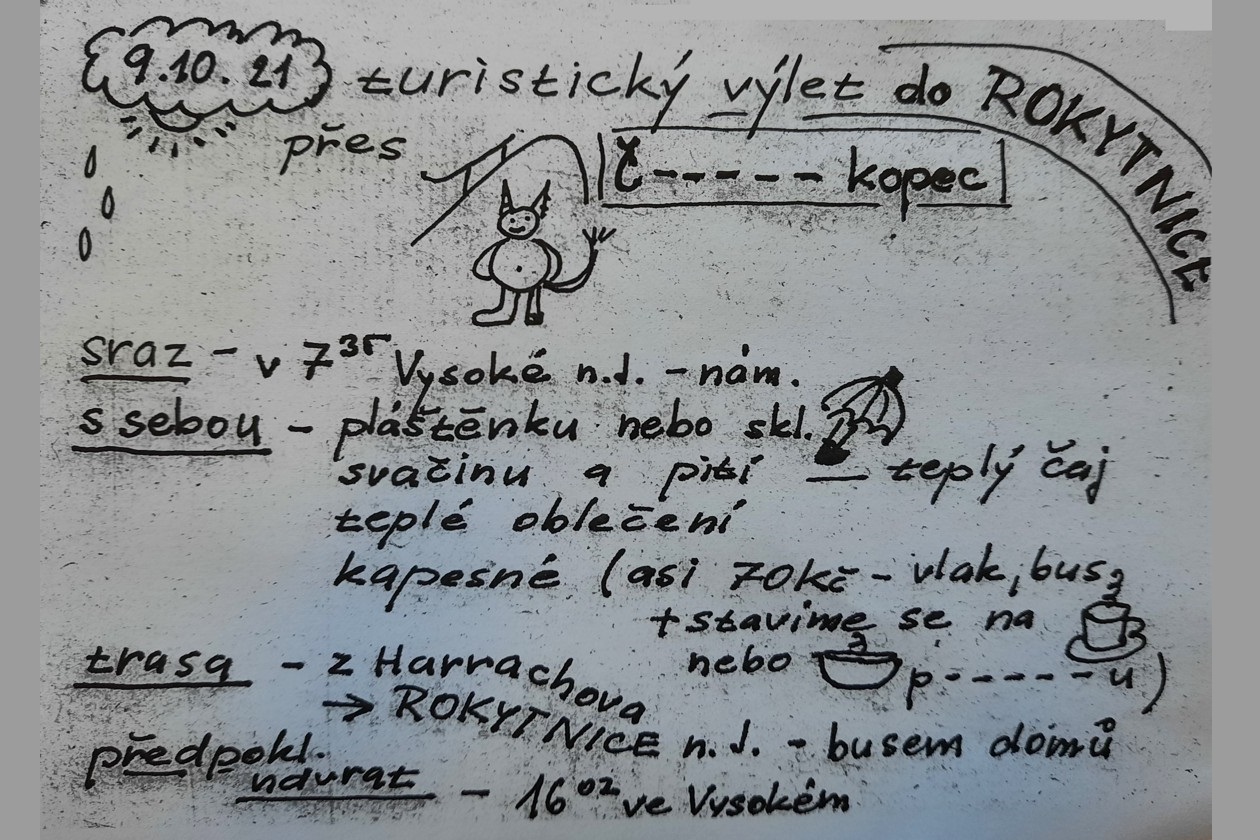 9.10.21 turistický výlet do ROKYTNICE
přes Č----- kopec
sraz - v 7³⁵ Vysoké n.J. - nám.
s sebou - pláštěnku nebo skl.
svačinu a pití - teplý čaj
teplé oblečení
kapesné (asi 70kč - vlak, bus
+ stavíme se na
nebo p------u)
trasa - z Harrachova
→ ROKYTNICE n.J. - busem domů
předpokl.
návrat - 16⁰² ve Vysokém